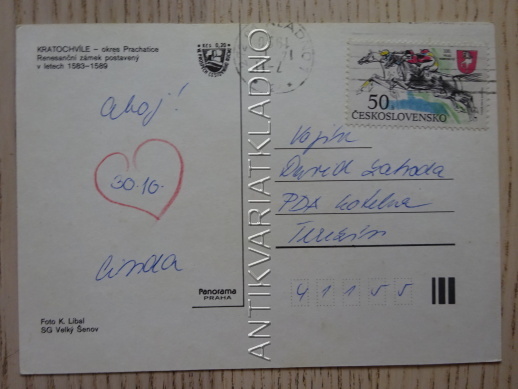 KRATOCHVÍLE – okres Prachatice
Renesanční zámek postavený
v letech 1583–1589
Ahoj!
30.10.
Linda
Panorama
PRAHA
Foto K. Líbal
SG Velký Šenov
ANTIKVARIATKLADNO
50
ČESKOSLOVENSKO
Vojín
David Zahoda
PDA kotelna
Terezín
41155